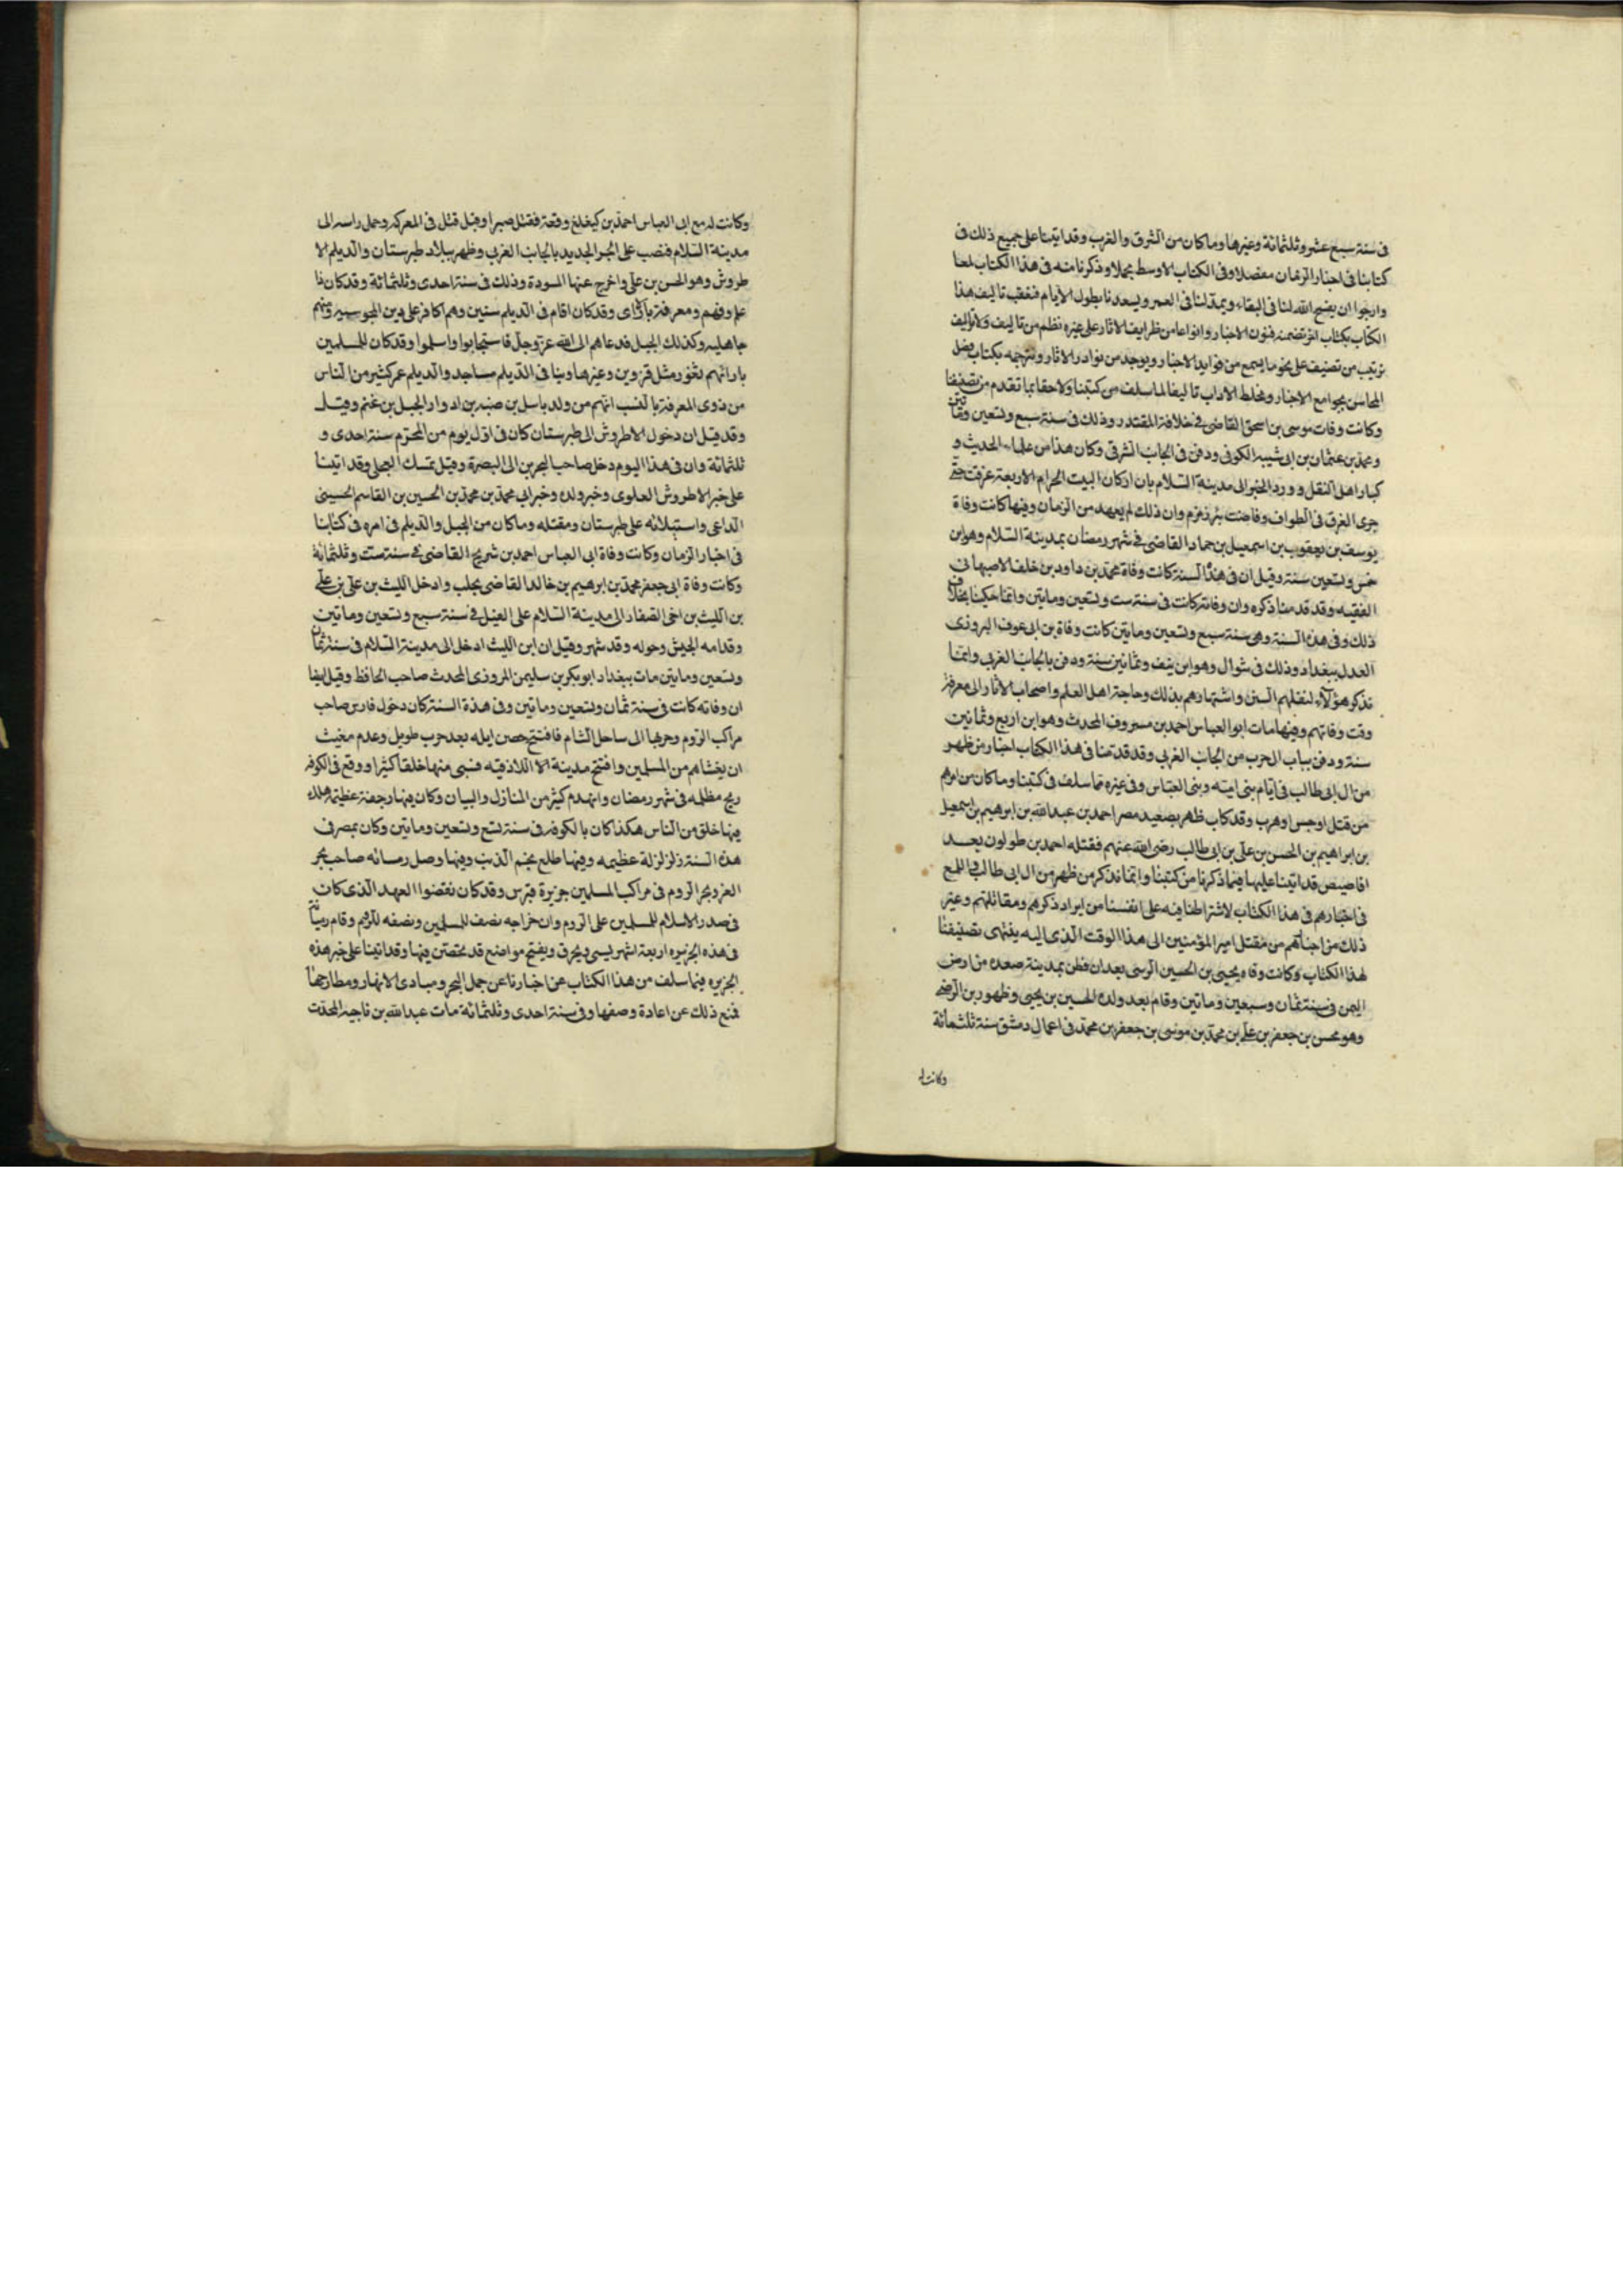 فى سنة سبع عشر وثلثمائة وغيرها وما كان من الشرق والغرب وقد اتينا على جميع ذلك فى
كتابنا فى اخبار الزمان مفصلا وفى الكتاب الاوسط مجملا وذكرنا منه فى هذا الكتاب لمعا
وارجوا ان يفسح الله لنا فى البقاء ويمد لنا فى العمر ويسعدنا بطول الايام فنعقب تاليف هذا
الكتاب بكتاب اخر نضمنه فنون الاخبار وانواعا من ظرايف الاثار على غيره نظم من تاليف ولا
ترتيب من تصنيف على نحو ما يسمع من فوايد الاخبار ويوجد من نوادر الاثار ونترجمه بكتاب وصل
المجالس بجوامع الاخبار ومخلط الاداب تاليفا لما سلف من كتبنا ولاحقا بما تقدم من تصنيفنا
وكانت وفات موسى بن اسحق القاضى فى خلافة المقتدر وذلك فى سنة سبع وتسعين ومأتين
ومحمد بن عثمان بن ابى شيبه الكوفى ودفن فى الجانب الشرقى وكان هذا من علماء الحديث و
كبار اهل النقل وورد الخبر الى مدينة السلام بان اركان البيت الحرام الاربعة غرقت حتى
جرى الغرق فى الطواف وفاضت بئر زمزم وان ذلك لم يعهد من الزمان وفيها كانت وفاة
يوسف بن يعقوب بن اسمعيل بن حماد القاضى فى شهر رمضان بمدينة السلام وهو ابن
خمس وتسعين سنة وقيل ان فى هذا السنة كانت وفاة محمد بن داود بن خلف الاصبهانى
الفقيه وقد قدمنا ذكره وان وفاته كانت فى سنة ست وتسعين ومايتين وانما حكينا بخلاف
ذلك وفى هذه السنة وهى سنة سبع وتسعين ومايتين كانت وفاة بن ابى عوف البروزى
العدل ببغداد وذلك فى شوال وهو ابن نيف وثمانين سنة ودفن بالجانب الغربى وانما
نذكر هؤلاء لنقلهم السنن واشتهارهم بذلك وحاجة اهل العلم واصحاب الاثار الى معرفة
وقت وفاتهم وفيها مات ابو العباس احمد بن مسروف المحدث وهو ابن اربع وثمانين
سنة ودفن بباب الحرب من الجانب الغربى وقد قدمنا فى هذا الكتاب اخبار من ظهر
من ال ابى طالب فى ايام بنى اميه وبنى العباس وفى غيره مما سلف فى كتبنا وما كان من امرهم
من قتل او حبس او هرب وقد كاب ظهر بصعيد مصر احمد بن عبد الله بن ابراهيم بن اسمعيل
بن ابراهيم بن الحسن بن على بن ابى طالب رضى الله عنهم فقتله احمد بن طولون بعد
اقاصيص قد اتينا عليها فيما ذكرنا من كتبنا وانما نذكر من ظهر من ال ابى طالب اللمع
فى اخبارهم فى هذا الكتاب لاشتراطنا فيه على انفسنا من ايراد ذكرهم ومقاتلهم وغير
ذلك من اخبارهم من مقتل امير المؤمنين الى هذا الوقت الذى اليه ينتهى تصنيفنا
لهذا الكتاب وكانت وفاه يحيى بن الحسين الرسى بعد ان قطن بمدينة صعده من ارض
اليمن فى سنة ثمان وسبعين ومايتين وقام بعد ولده الحسين بن يحيى وظهور بن الرضى
وهو محسن بن جعفر بن على بن محمد بن موسى بن جعفر بن محمد فى اعمال دمشق سنة ثلثمائة
وكانت له
وكانت له مع ابى العباس احمد بن كيغلغ وقعة فقتل صبرا وقيل قتل فى المعركه وحمل راسه الى
مدينة السلام فنصب على الجسر الجديد بالجانب الغربى وظهر ببلاد طبرستان والديلم الا
طروش وهو الحسن بن على واخرج عنها المسودة وذلك فى سنة احدى وثلثمائة وقد كان ذا
علم وفهم ومعرفة بالاراى وقد كان اقام فى الديلم سنين وهم كافر على دين المجوسيه ومنهم
جاهليه وكذلك الجبل فدعاهم الى الله عز وجل فاستجابوا واسلموا وقد كان للمسلمين
بازائهم ثغور مثل قزوين وغيرها وبنا فى الديلم مساجد والديلم عمر كثير من الناس
من ذوى المعرفة بالنسب انهم من ولد باسل بن ضبه بن اد وار الجبل بن غنم وقيل
وقد قيل ان دخول الاطروش الى طبرستان كان فى اول يوم من المحرم سنة احدى و
ثلثمائة وان فى هذا اليوم دخل صاحب البحرين الى البصرة وقيل بمسك البجلى وقد اتينا
على خبر الاطروش العلوى وخبر ولده وخبر ابى محمد بن محمد بن الحسين بن القاسم الحسينى
الداعى واستيلائه على طبرستان ومقتله وما كان من الجبل والديلم فى امره فى كتابنا
فى اخبار الزمان وكانت وفاة ابى العباس احمد بن شريح القاضى فى سنة ست وثلثمائة
وكانت وفاة ابى جعفر محمد بن ابرهيم بن خالد القاضى بحلب وادخل الليث بن على بن على
بن الليث بن اخى الصفار الى مدينة السلام على الفيل فى سنة سبع وتسعين ومايتين
وقدامه الجيش وحوله وقد شهر وقيل ان ابن الليث ادخل الى مدينة السلام فى سنة ثمان
وتسعين ومايتين مات ببغداد ابو بكر بن سليمن المروزى المحدث صاحب الحافظ وقيل ايضا
ان وفاته كانت فى سنة ثمان وتسعين ومايتين وفى هذة السنة كان دخول فارس صاحب
مراكب الروم وحربها الى ساحل الشام فافتتح حصن ايله بعد حرب طويل وعدم مغيث
ان يغشاهم من المسلمين وافتتح مدينة الاللاذقيه فسبى منها خلقا كثيرا ووقع فى الكوفه
ريح مظلمه فى شهر رمضان وانهدم كثير من المنازل والبيان وكان فيها رجفة عظيمة هلك
فيها خلق من الناس هكذا كان بالكوفه فى سنة تسع وتسعين ومايتين وكان بمصر فى
هذه السنة زلزلزلة عظيمه وفيها طلع نجم الذنب وفيها وصل رسانه صاحب بحر
الغزو بحر الروم فى مراكب المسلمين جزيرة قبرس وقد كان نقضوا العهد الذى كان
فى صدر الاسلام للمسلمين على الروم وان خراجه نصف للمسلمين ونصفه للروم وقام
فى هذه الجزيره اربعة اشهر يسبى ويحرق ويفتح مواضع قد تحصتن فيها وقد اتينا على خبر هذه
الجزيره فيما سلف من هذا الكتاب عن اخبارنا عن جمل البحر ومبادى الانهار ومطارحها
فمنع ذلك عن اعادة وصفها وفى سنة احدى وثلثمائة مات عبد الله بن ناجيه المحدث